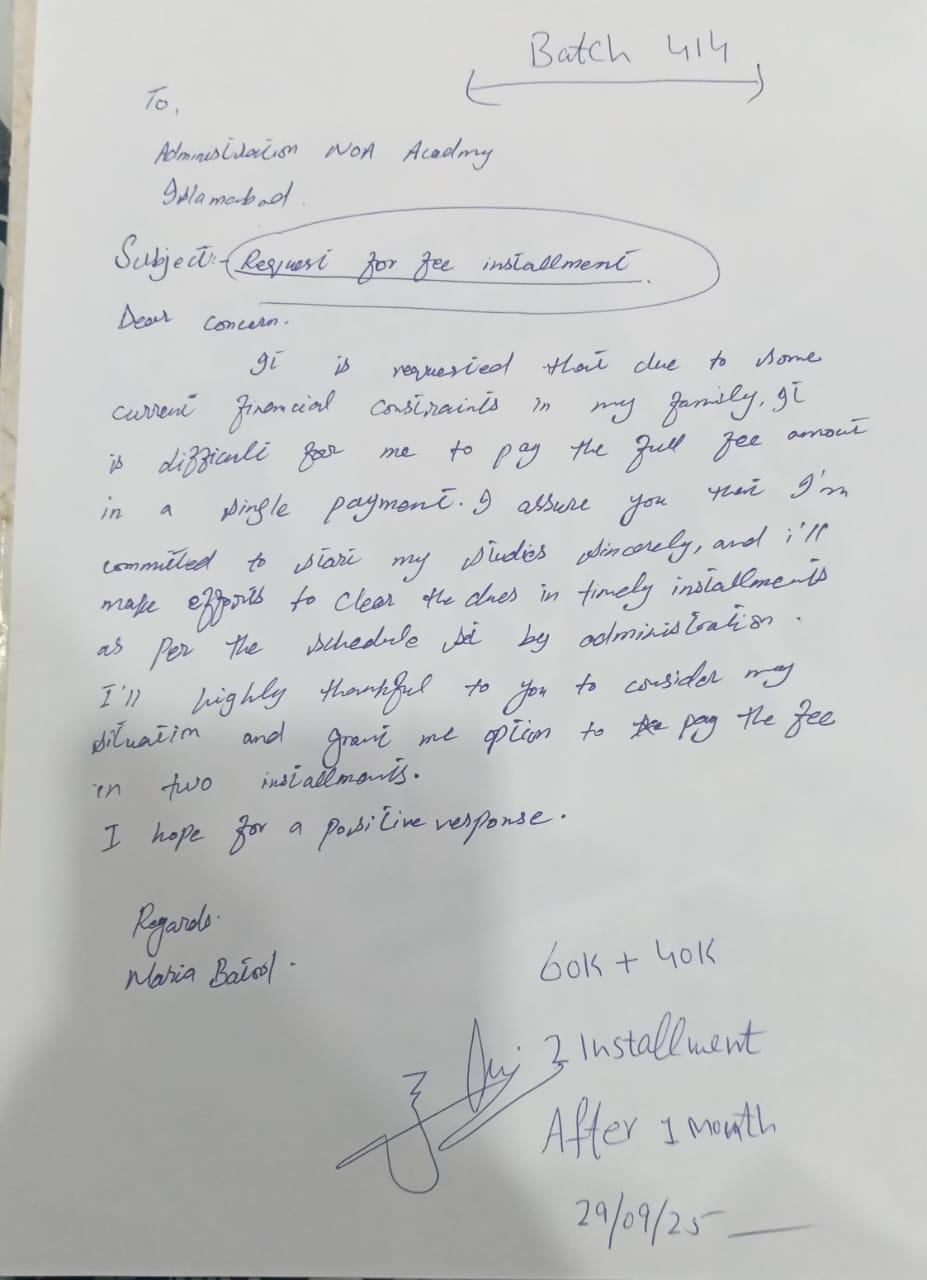 Batch 414
To,
Administration NOA Acadmy
Islamabad.
Subject:- Request for fee installment.
Dear Concern.
It is requested that due to some
current financial constraints in my family, It
is difficult for me to pay the full fee amout
in a single payment. I assure you that I'm
committed to start my studies sincerely, and i'll
make efforts to clear the dues in timely installments
as per the schedule set by administration.
I'll highly thankful to you to consider my
situation and grant me option to pay the fee
in two installments.
I hope for a positive response.
Regards.
Maria Batool.
60K + 40K
2 Installment
After 1 month
29/09/25